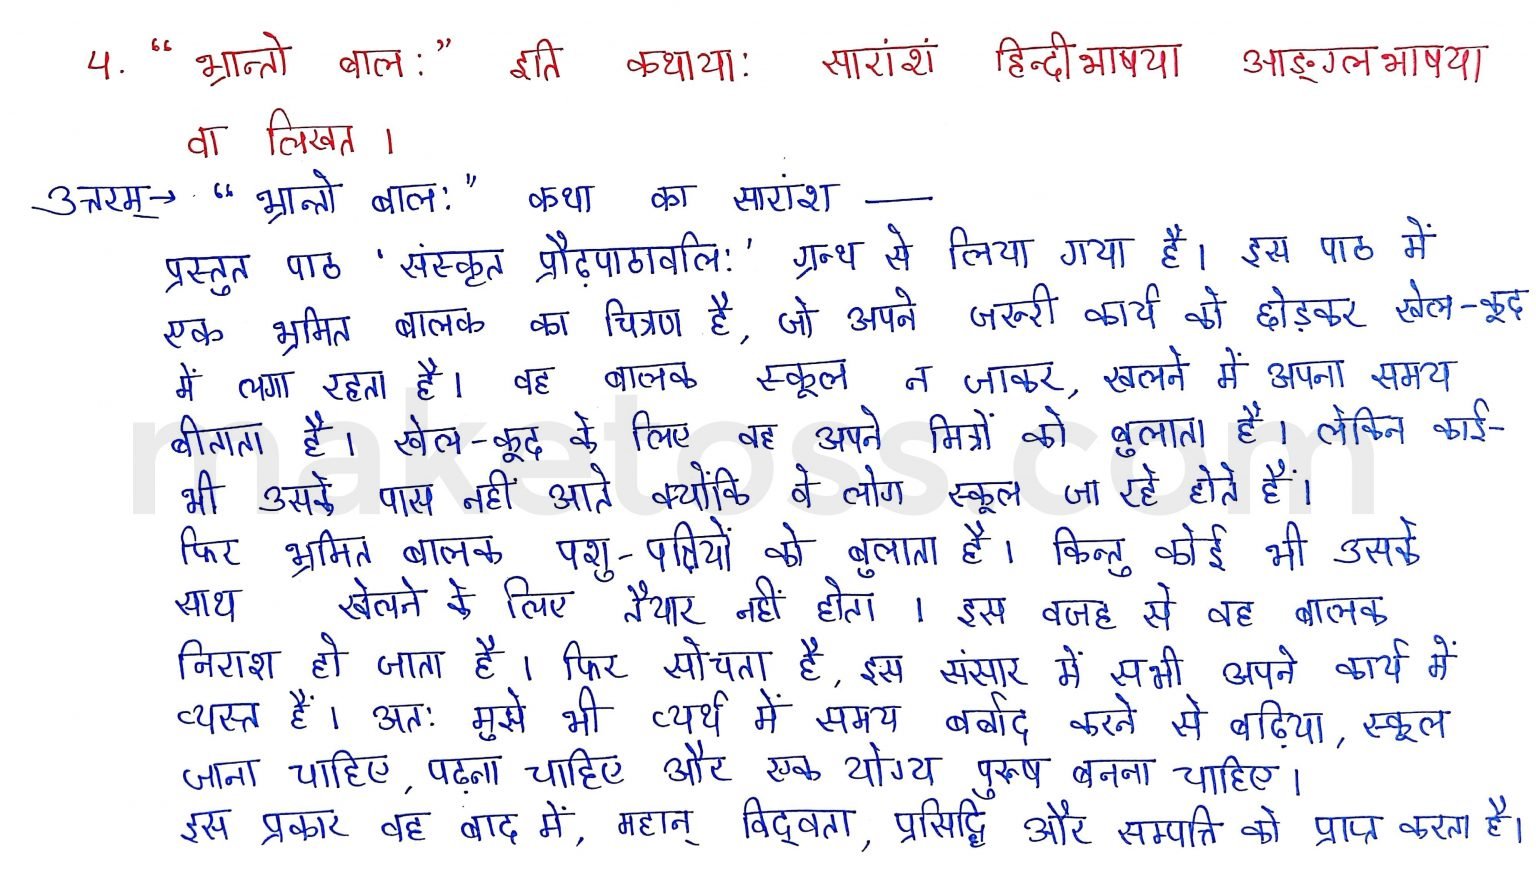 4. “ भ्रान्तो बाल: ” इति कथाया: सारांशं हिन्दीभाषया आङ्ग्लभाषया
वा लिखत ।
उत्तरम् → “ भ्रान्तो बाल: ” कथा का सारांश —
प्रस्तुत पाठ ' संस्कृत प्रौढ़पाठावलि: ' ग्रन्थ से लिया गया है । इस पाठ में
एक भ्रमित बालक का चित्रण है, जो अपने जरूरी कार्य को छोड़कर खेल-कूद
में लगा रहता है । वह बालक स्कूल न जाकर, खेलने में अपना समय
बीताता है । खेल-कूद के लिए वह अपने मित्रों को बुलाता है । लेकिन काई-
भी उसके पास नहीं आते क्योंकि वे लोग स्कूल जा रहे होते हैं ।
फिर भ्रमित बालक पशु-पक्षियों को बुलाता है । किन्तु कोई भी उसके
साथ खेलने के लिए तैयार नहीं होता । इस वजह से वह बालक
निराश हो जाता है । फिर सोचता है, इस संसार में सभी अपने कार्य में
व्यस्त हैं । अत: मुझे भी व्यर्थ में समय बर्बाद करने से बढ़िया, स्कूल
जाना चाहिए, पढ़ना चाहिए और एक योग्य पुरूष बनना चाहिए ।
इस प्रकार वह बाद में, महान् विद्वता, प्रसिद्धि और सम्पत्ति को प्राप्त करता है ।
maketoss.com